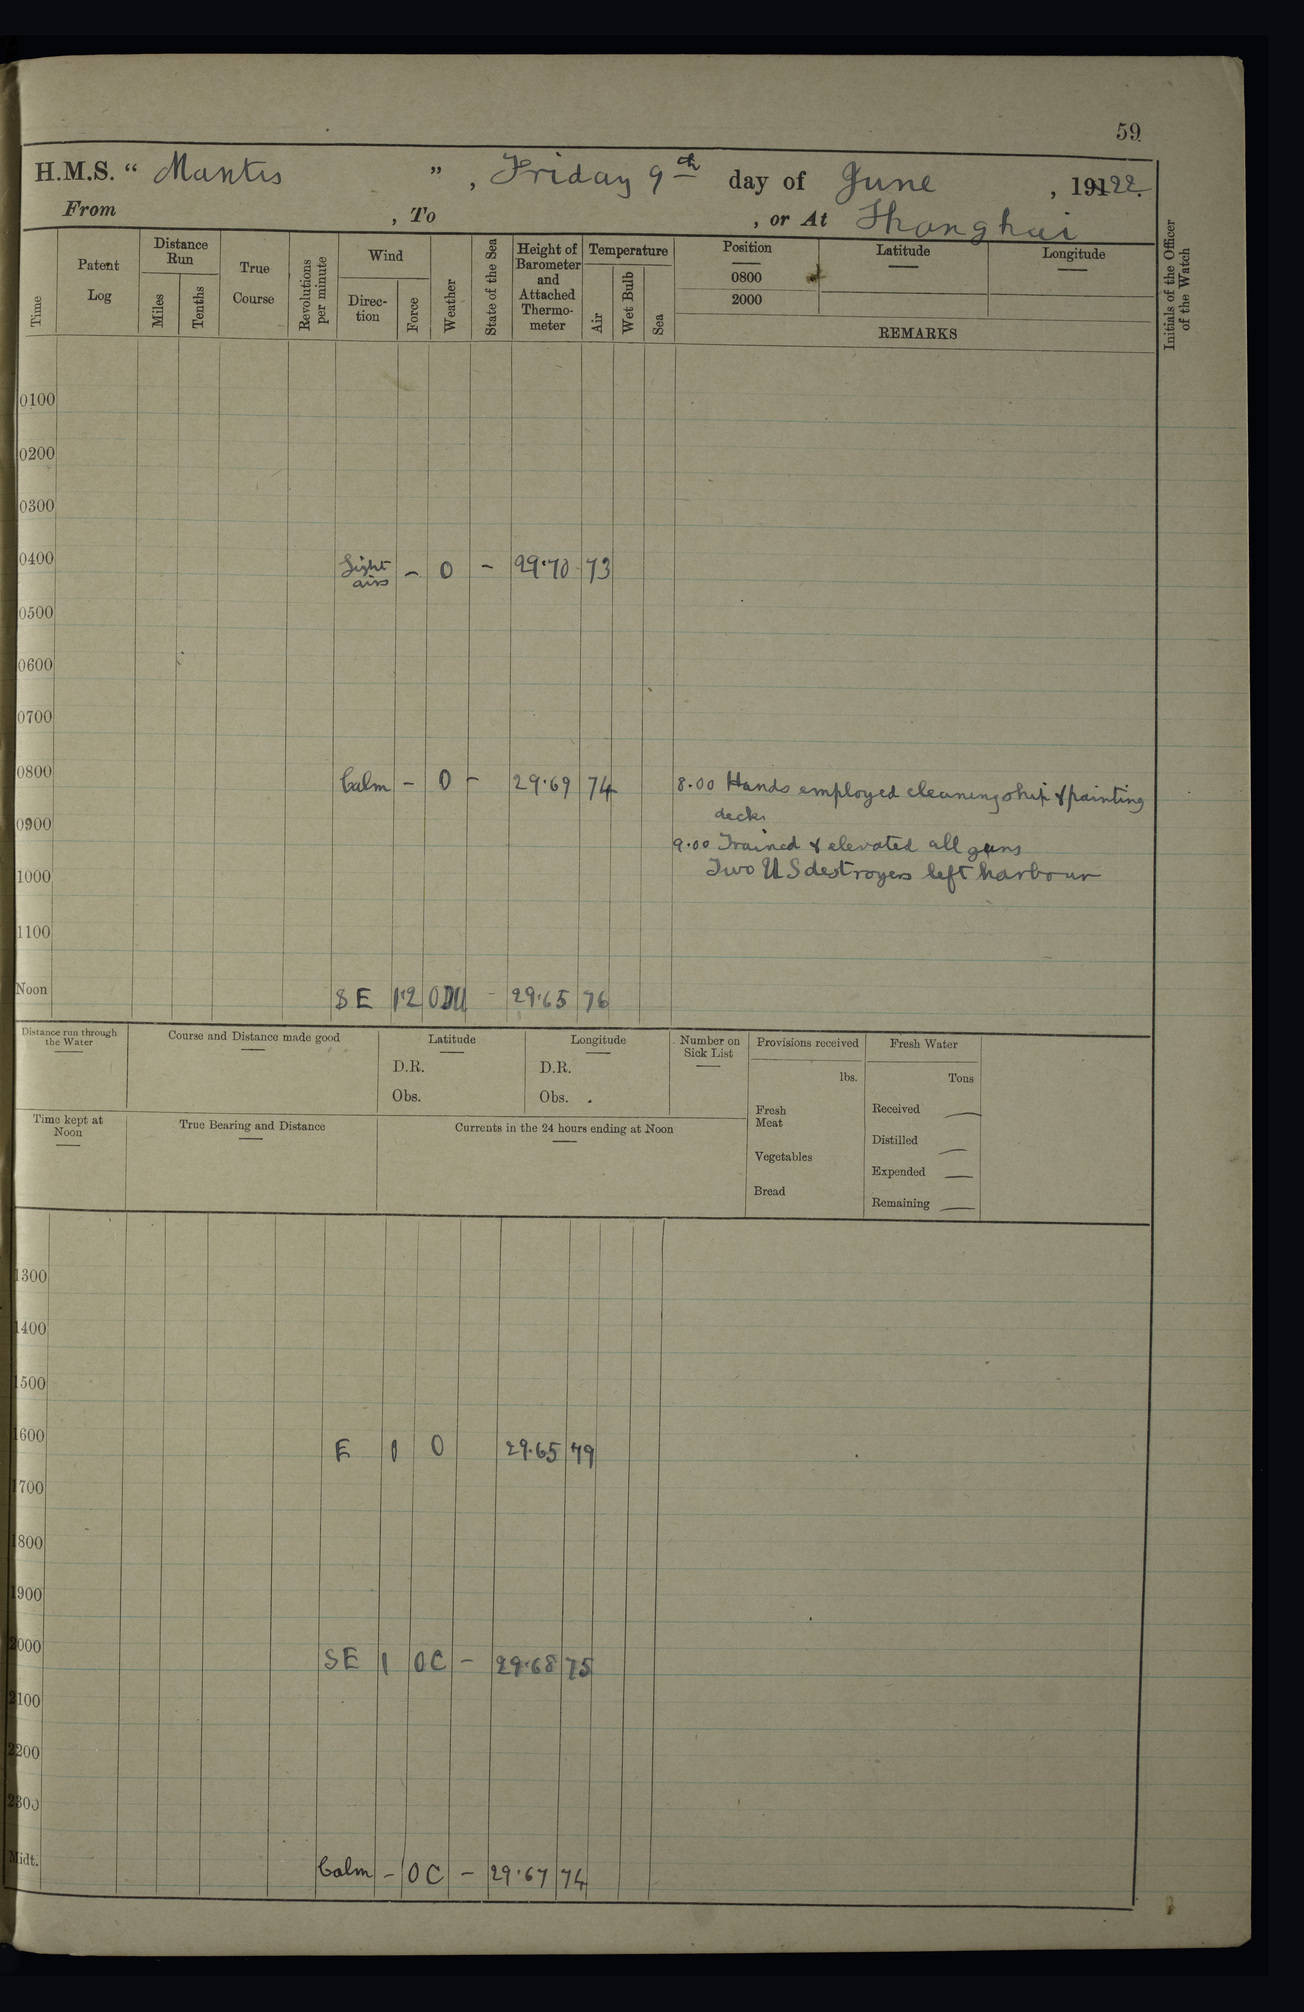 59.
H.M.S. “ Mantis ” , Friday 9th day of June , 19122.
From , To , or At Shanghai
Time
Patent Log
Distance Run
Miles
Tenths
True Course
Revolutions per minute
Wind
Direction
Force
Weather
State of the Sea
Height of Barometer and Attached Thermometer
Temperature
Air
Wet Bulb
Sea
Position
0800
2000
Latitude
Longitude
REMARKS
Initials of the Officer of the Watch
0100
0200
0300
0400 Light airs – O – 29.70 73
0500
0600
0700
0800 Calm – O – 29.69 74 8.00 Hands employed cleaning ship & painting
decks
0900 9.00 Trained & elevated all guns
1000 Two U S destroyers left harbour
1100
Noon SE 1.2 ODU – 29.65 76
Distance run through the Water
Course and Distance made good
Latitude
D.R.
Obs.
Longitude
D.R.
Obs.
Number on Sick List
Provisions received
lbs.
Fresh Meat
Vegetables
Bread
Fresh Water
Tons
Received —
Distilled —
Expended —
Remaining —
Time kept at Noon
True Bearing and Distance
Currents in the 24 hours ending at Noon
1300
1400
1500
1600 E 1 O 29.65 79
1700
1800
1900
2000 SE 1 OC – 29.68 75
2100
2200
2300
Midt. Calm – OC – 29.67 74